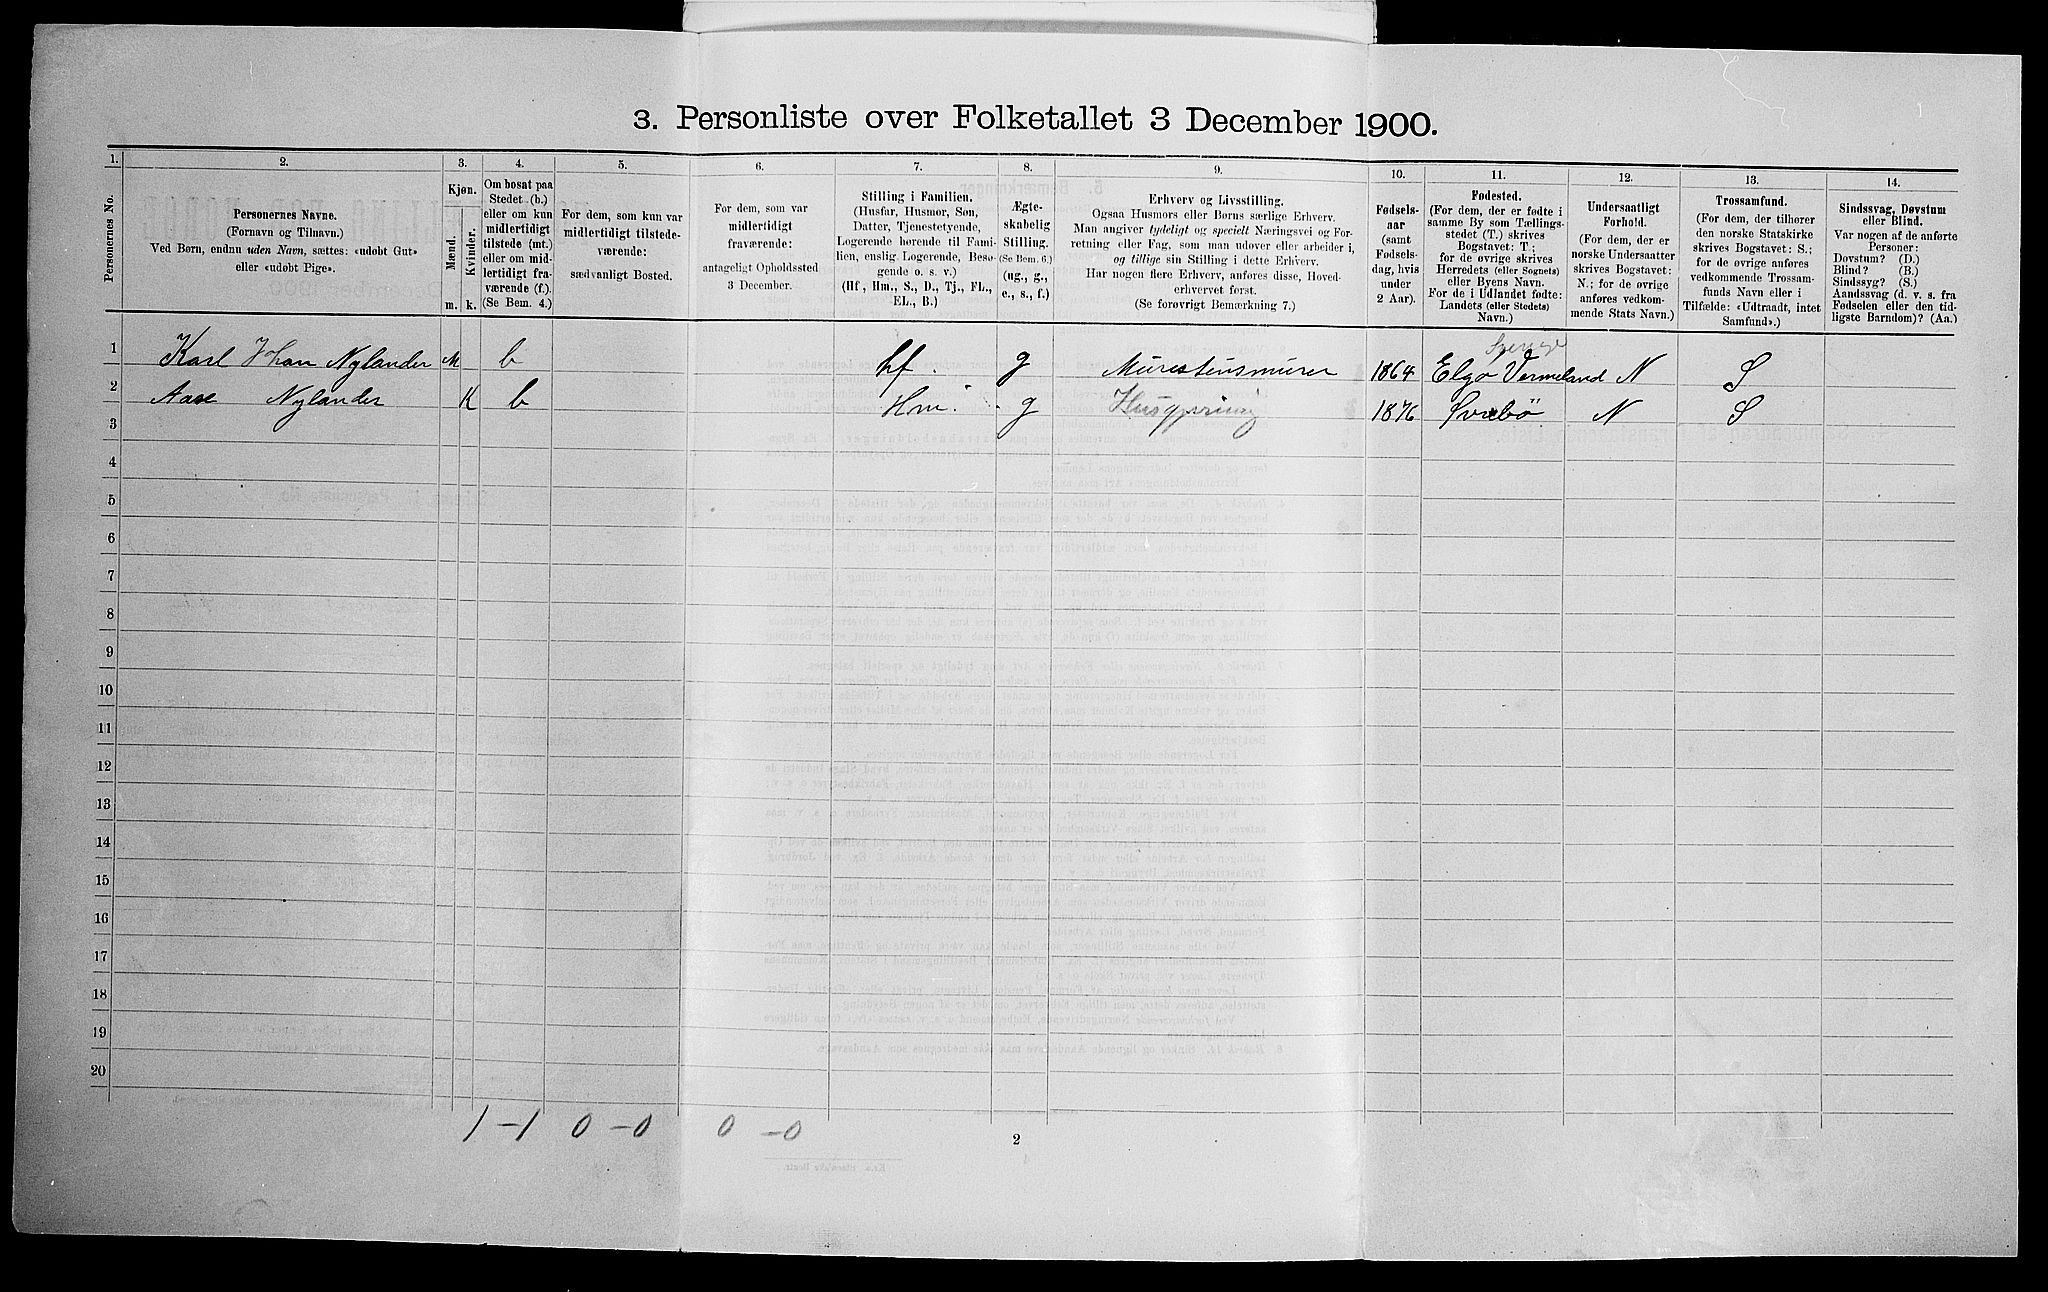 3. Personliste over Folketallet 3 December 1900.
1. 2. 3. 4. 5. 6. 7. 8. 9. 10. 11. 12. 13. 14.
Personernes No.
Personernes Navne.
(Fornavn og Tilnavn.)
Ved Børn, endnu uden Navn, sættes: «udøbt Gut»
eller «udøbt Pige».
Kjøn.
Mænd.
Kvinder.
m. k.
Om bosat paa
Stedet (b.)
eller om kun
midlertidigt
tilstede (mt.)
eller om mid-
lertidigt fra-
værende (f.).
(Se Bem. 4.)
For dem, som kun var
midlertidigt tilstede-
værende:
sædvanligt Bosted.
For dem, som var
midlertidigt
fraværende:
antageligt Opholdssted
3 December.
Stilling i Familien.
(Husfar, Husmor, Søn,
Datter, Tjenestetyende,
Logerende hørende til Fami-
lien, enslig Logerende, Besø-
gende o. s. v.)
(Hf, Hm., S., D., Tj., FL.,
EL., B.)
Ægte-
skabelig
Stilling.
(Se Bem. 6.)
(ug., g.,
e., s., f.)
Erhverv og Livsstilling.
Ogsaa Husmors eller Børns særlige Erhverv.
Man angiver tydeligt og specielt Næringsvei og For-
retning eller Fag, som man udover eller arbeider i,
og tillige sin Stilling i dette Erhverv.
Har nogen flere Erhverv, anføres disse, Hoved-
erhvervet først.
(Se forøvrigt Bemærkning 7.)
Fødsels-
aar
(samt
Fødsels-
dag, hvis
under
2 Aar).
Fødested.
(For dem, der er fødte i
samme By som Tællings-
stedet (T.) skrives
Bogstavet: T.;
for de øvrige skrives
Herredets (eller Sognets)
eller Byens Navn.
For de i Udlandet fødte:
Landets (eller Stedets)
Navn.)
Undersaatligt
Forhold.
(For dem, der er
norske Undersaatter
skrives Bogstavet:
N.; for de øvrige
anføres vedkom-
mende Stats Navn.)
Trossamfund.
(For dem, der tilhører
den norske Statskirke
skrives Bogstavet: S.;
for de øvrige anføres
vedkommende Trossam-
funds Navn eller i
Tilfælde: «Udtraadt, intet
Samfund».)
Sindssvag, Døvstum
eller Blind.
Var nogen af de anførte
Personer:
Døvstum? (D.)
Blind? (B.)
Sindssyg? (S.)
Aandssvag (d. v. s. fra
Fødselen eller den tid-
ligste Barndom)? (Aa.)
Sverige
1 Karl Johan Nylander M b hf. g Murestensmurer 1864 Elgo Vermeland N S
2 Aase Nylander K b Hm. g Husgjerning 1876 Øvrebø N S
3
4
5
6
7
8
9
10
11
12
13
14
15
16
17
18
19
20
1 - 1 0 - 0 0 - 0
2